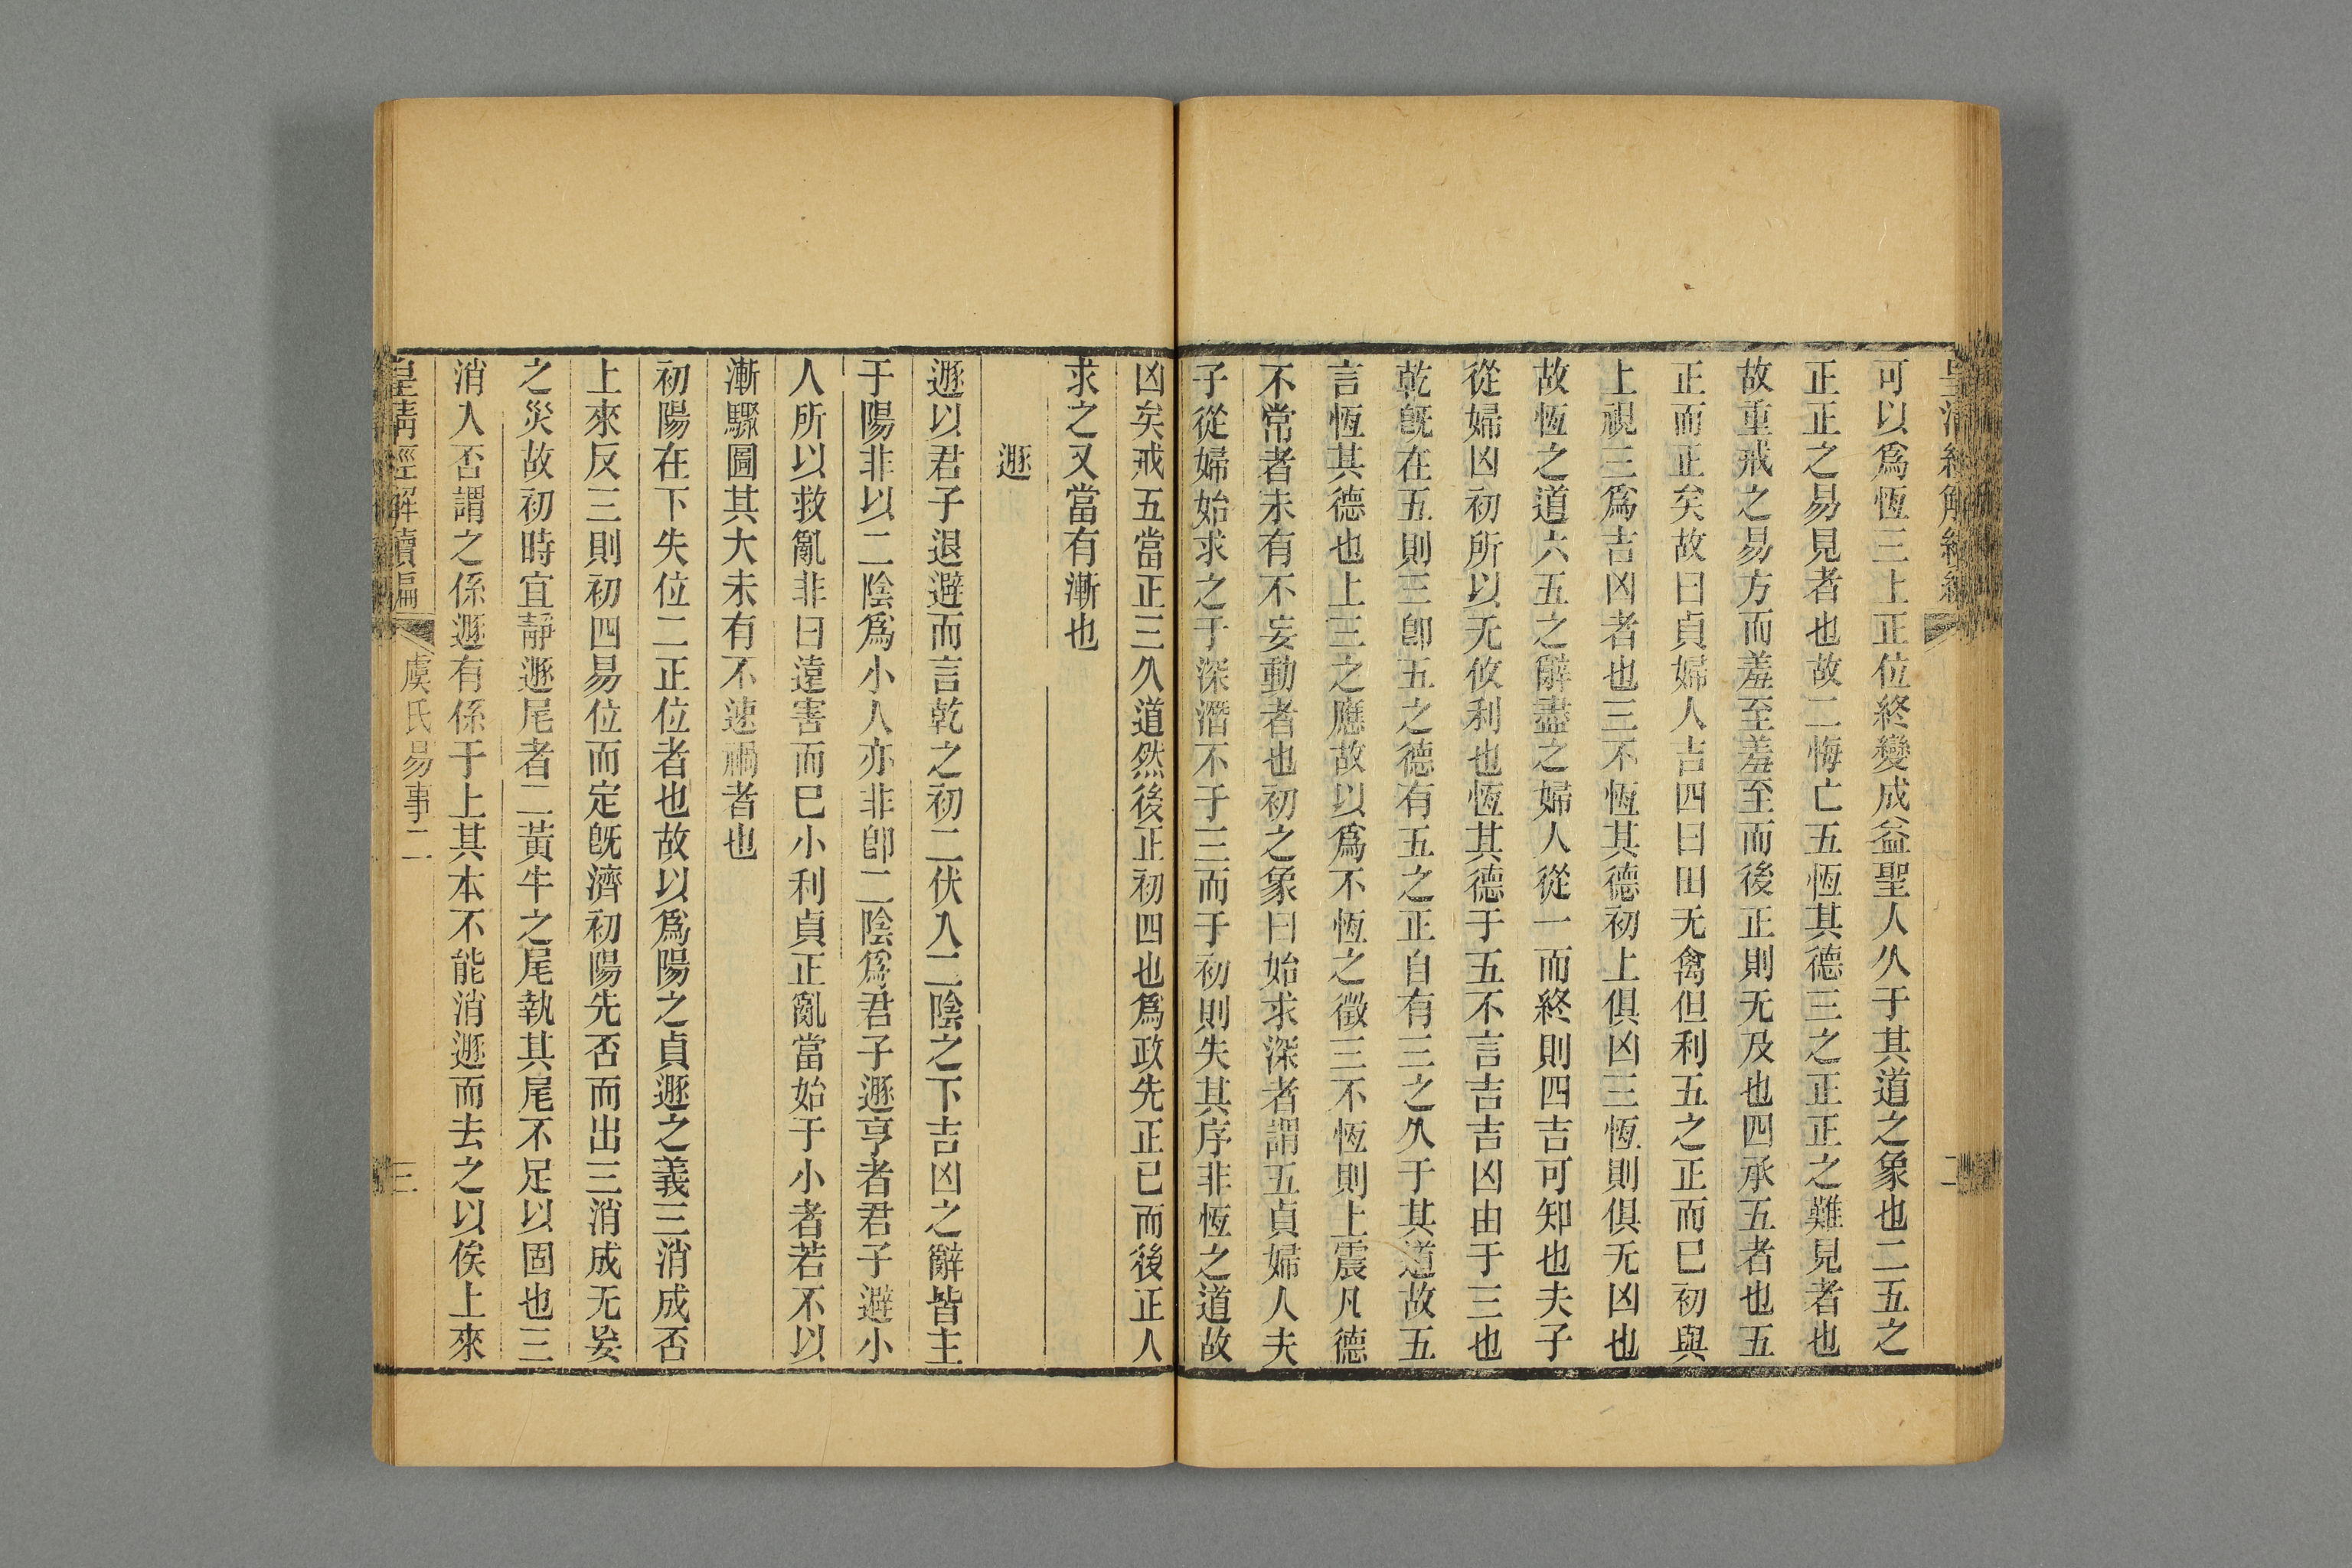 可以爲恆三上正位終變成益聖人久于其道之象也二五之
正正之易見者也故二悔亡五恆其德三之正正之難見者也
故重戒之易方而羞至羞至而後正則无及也四承五者也五
正而正矣故曰貞婦人吉四曰田无禽但利五之正而已初與
上視三爲吉凶者也三不恆其德初上俱凶三恆則俱无凶也
故恆之道六五之辭盡之婦人從一而終則四吉可知也夫子
從婦凶初所以无攸利也恆其德于五不言吉吉凶由于三也
乾旣在五則三卽五之德有五之正自有三之久于其道故五
言恆其德也上三之應故以爲不恆之徵三不恆則上震凡德
不常者未有不妄動者也初之象曰始求深者謂五貞婦人夫
子從婦始求之于深濳不于三而于初則失其序非恆之道故
凶矣戒五當正三久道然後正初四也爲政先正已而後正人
求之又當有漸也
遯
遯以君子退避而言乾之初二伏入二陰之下吉凶之辭皆主
于陽非以二陰爲小人亦非卽二陰爲君子遯亨者君子避小
人所以救亂非曰遠害而已小利貞正亂當始于小者若不以
漸驟圖其大未有不速禍者也
初陽在下失位二正位者也故以爲陽之貞遯之義三消成否
上來反三則初四易位而定旣濟初陽先否而出三消成无妄
之災故初時宜靜遯尾者二黃牛之尾執其尾不足以固也三
消入否謂之係遯有係于上其本不能消遯而去之以俟上來
皇淸經解續編
虞氏易事二
三